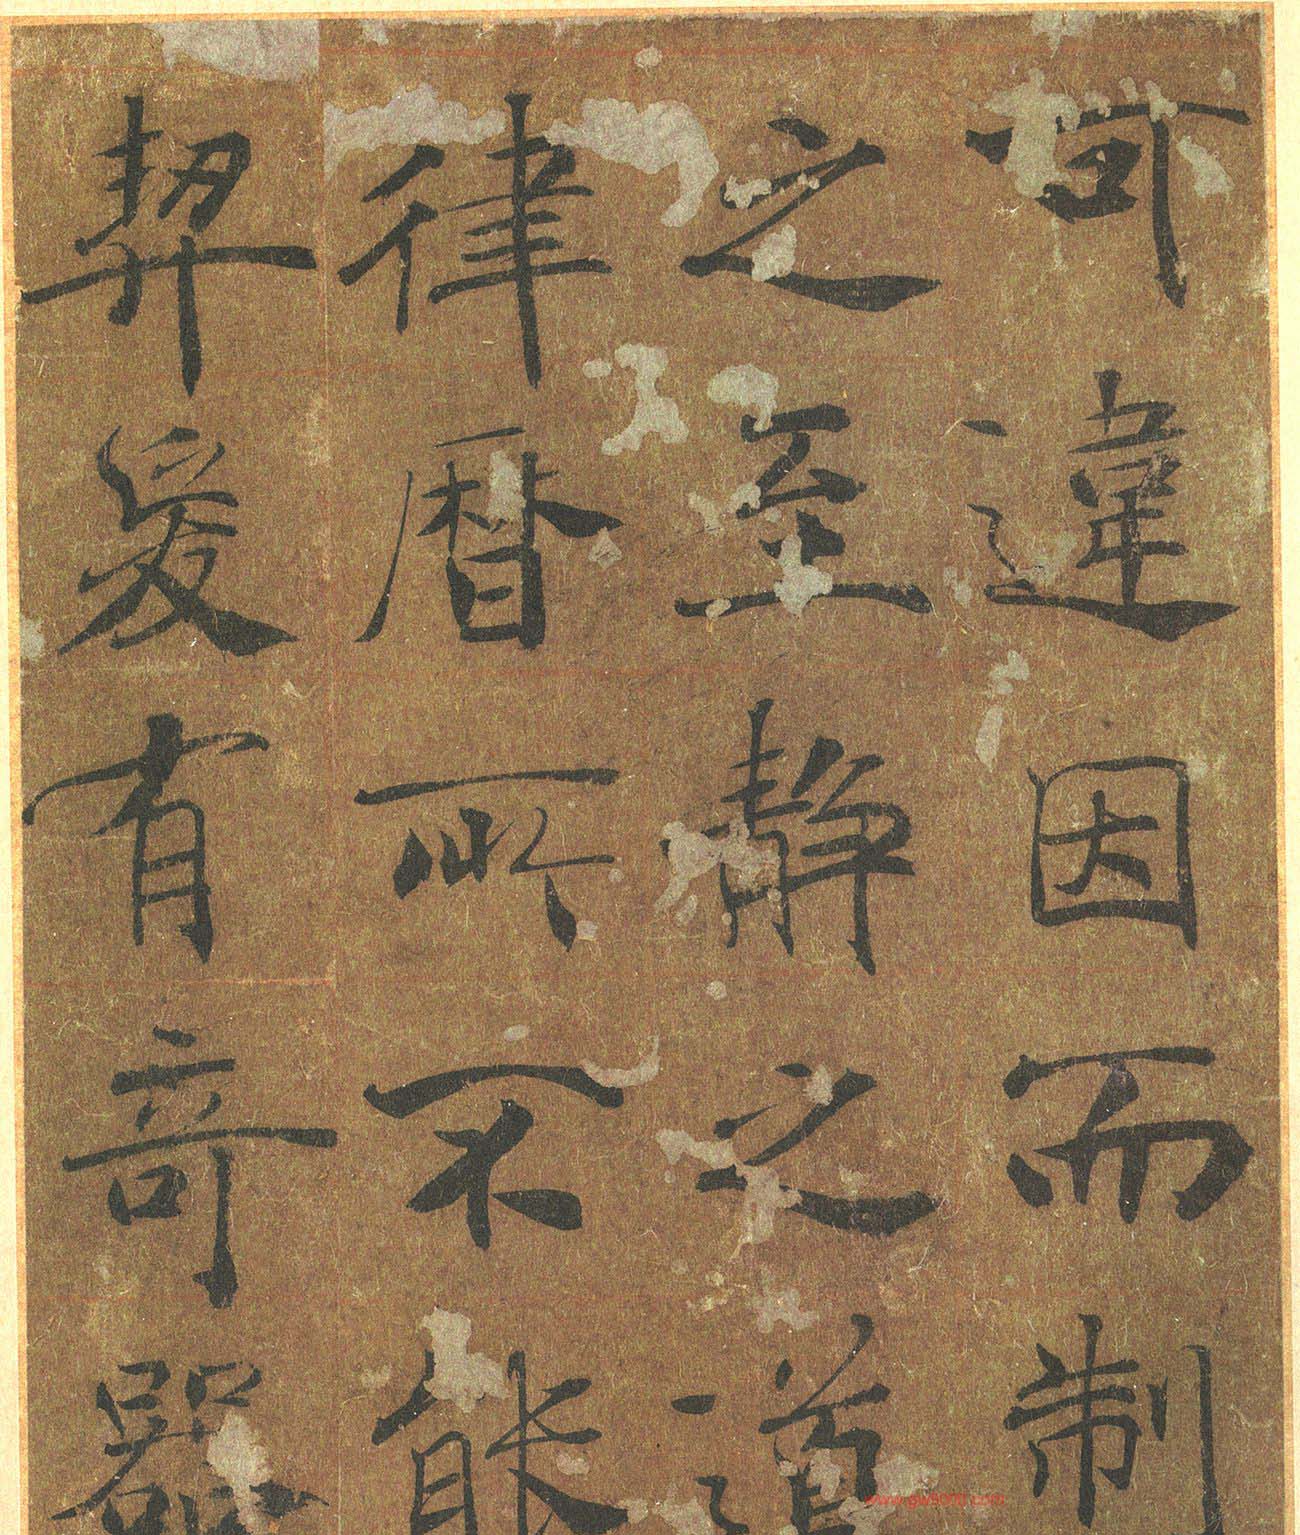 可違因而制
之至静之道
律暦所不能
契爰有竒器
www.gw5000.com